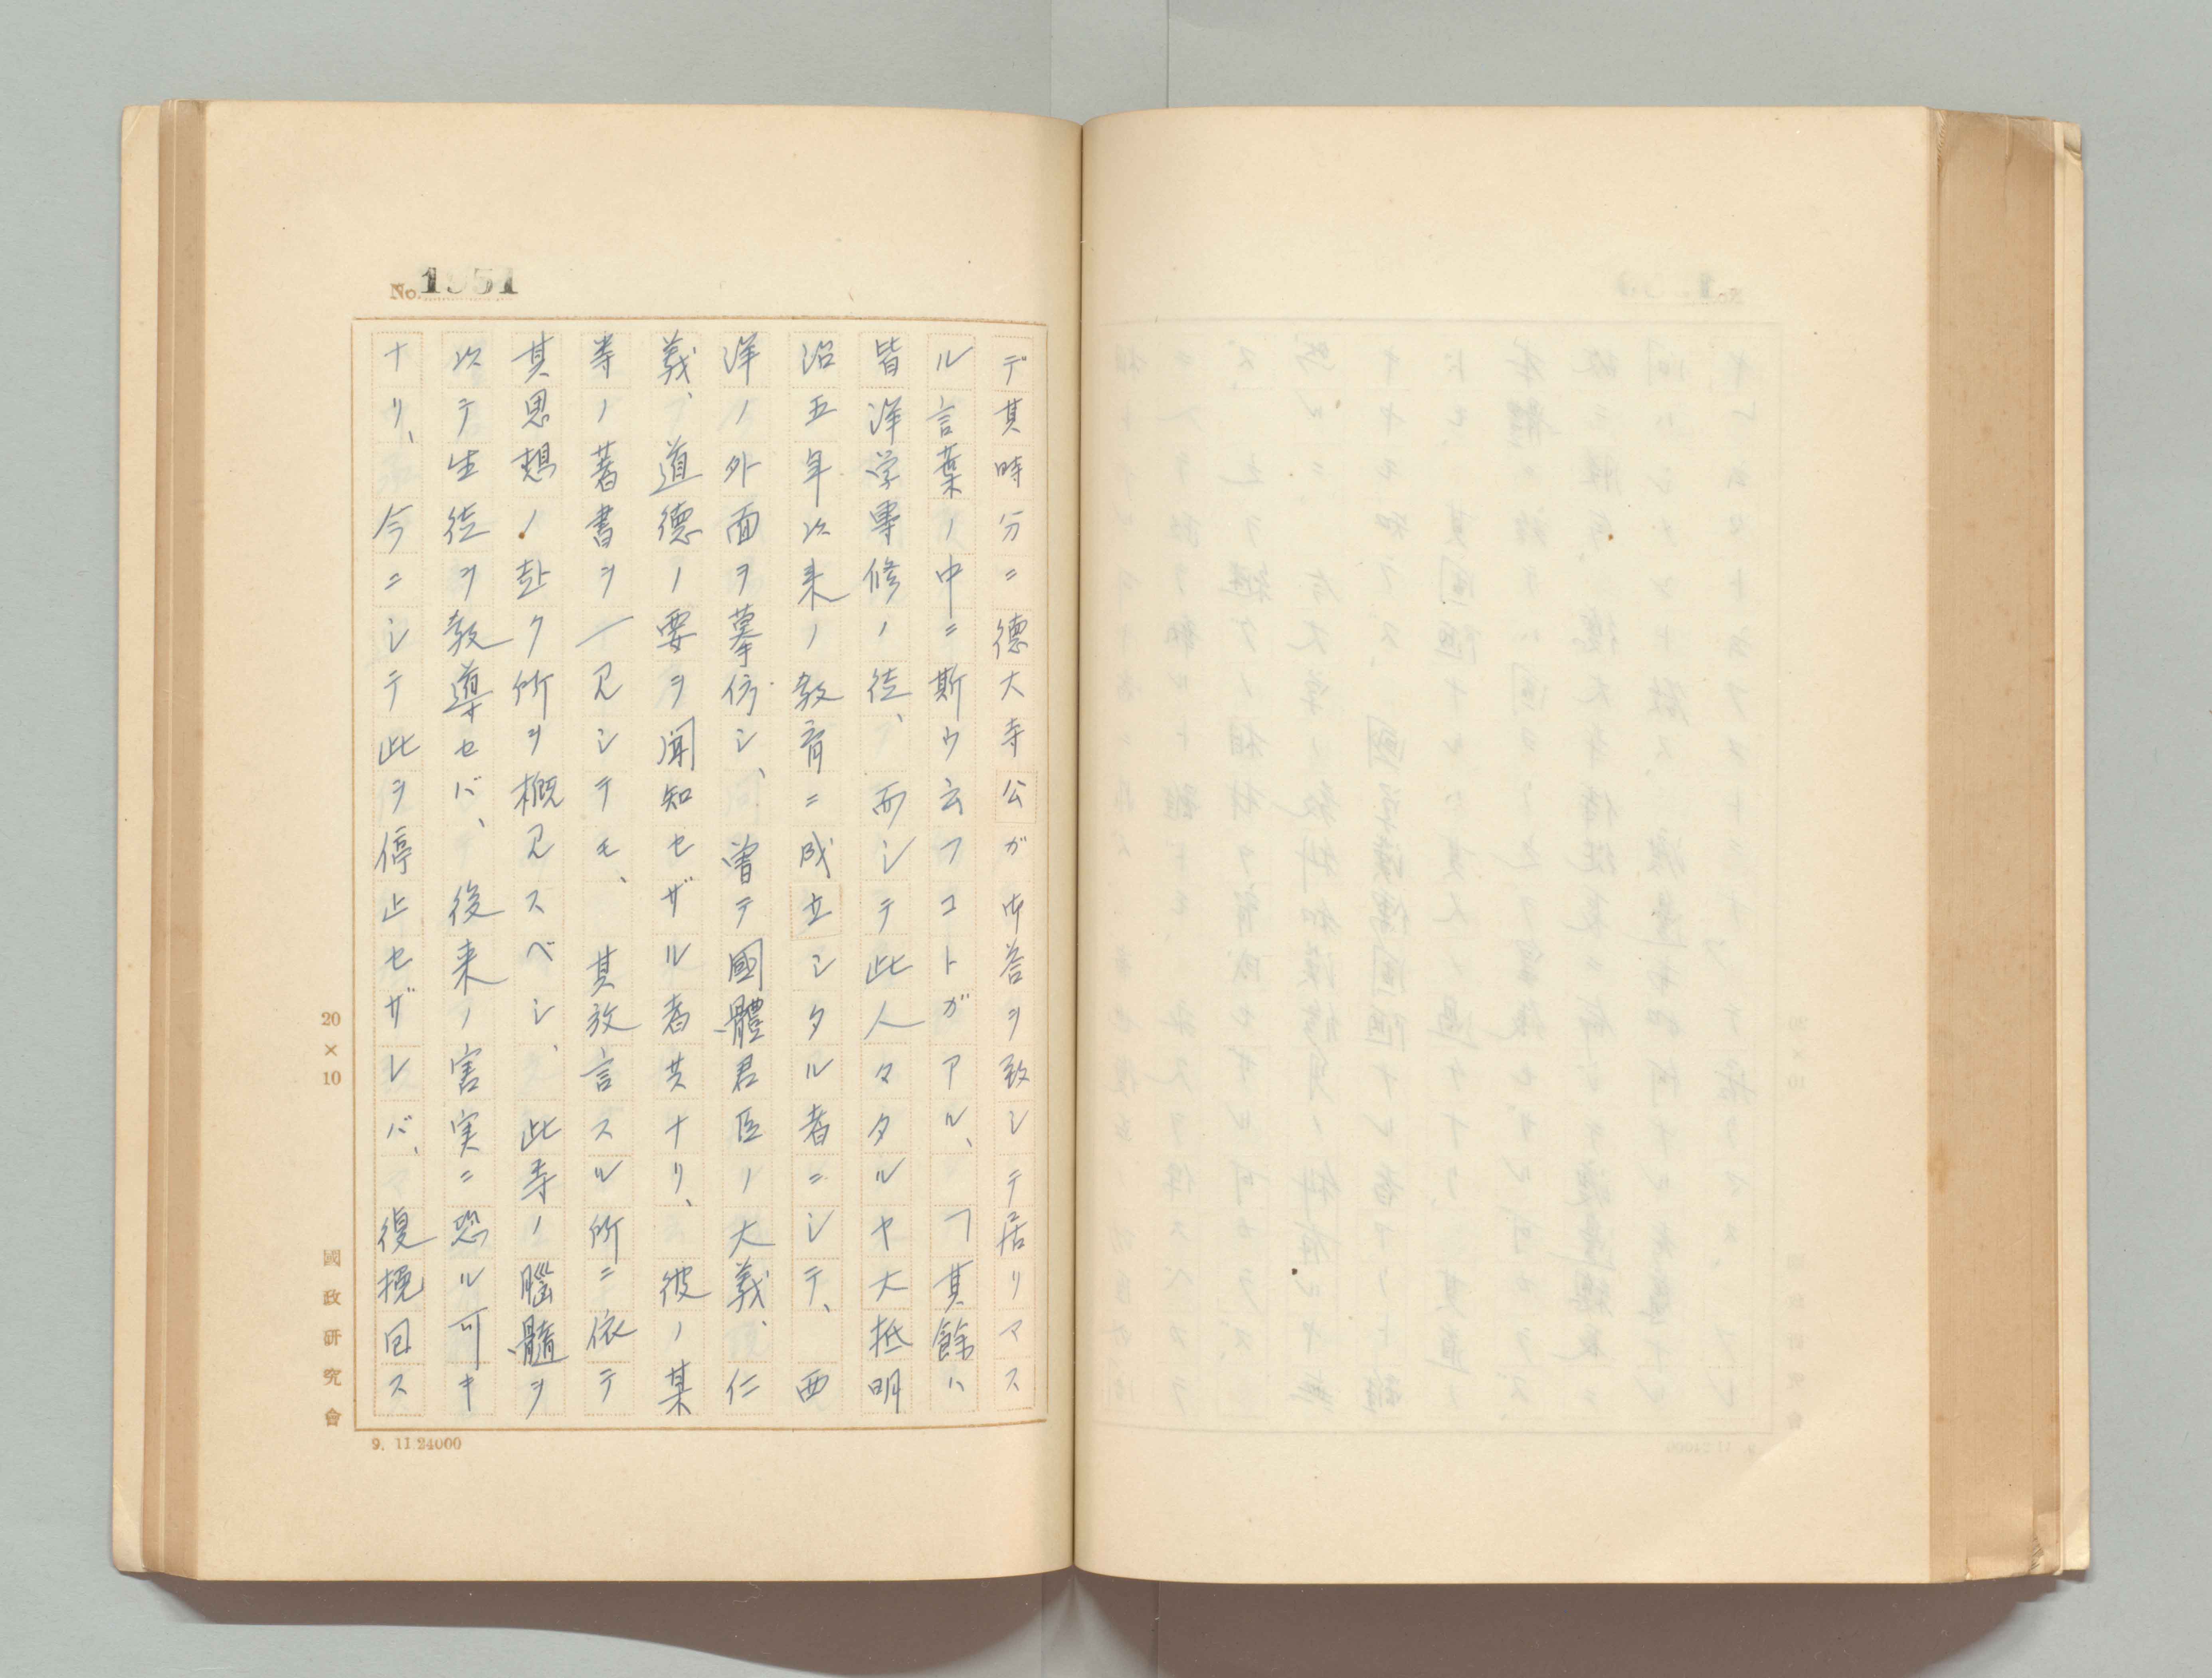 No. 1951
デ其時分ニ徳大寺公ガ御答ヲ致シテ居リマス
ル言葉ノ中ニ斯ウ云フコトガアル、「其餘ハ
皆洋学専修ノ徒、而シテ此人々タルヤ大抵明
治五年以来ノ教育ニ成立シタル者ニシテ、西
洋ノ外面ヲ摹倣シ、曽テ國體君臣ノ大義、仁
義、道徳ノ要ヲ聞知セザル者共ナリ、彼ノ某
等ノ著書ヲ一見シテモ、其放言スル所ニ依テ
其思想ノ赴ク所ヲ概見スベシ、此等ノ腦髓ヲ
以テ生徒ヲ教導セバ、後来ノ害実ニ恐ル可キ
ナリ、今ニシテ此ヲ停止セザレバ、復挽回ス
20×10
國政研究會
9. 11.24000